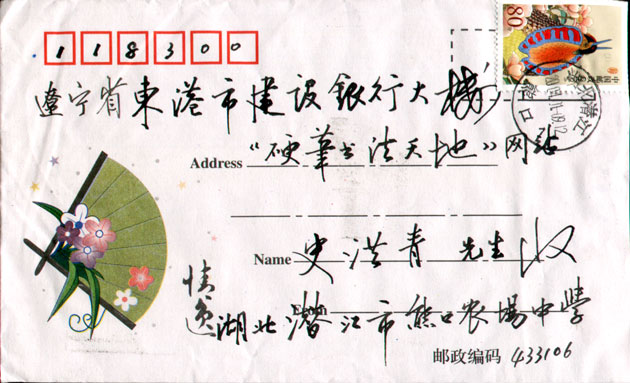 118300
80
中国邮政
遼宁省東港市建设銀行大楼
Address “硬筆书法天地”网站
Name 史洪青 先生 收
From
情遞 湖北潜江市熊口农場中學
邮政编码 433106